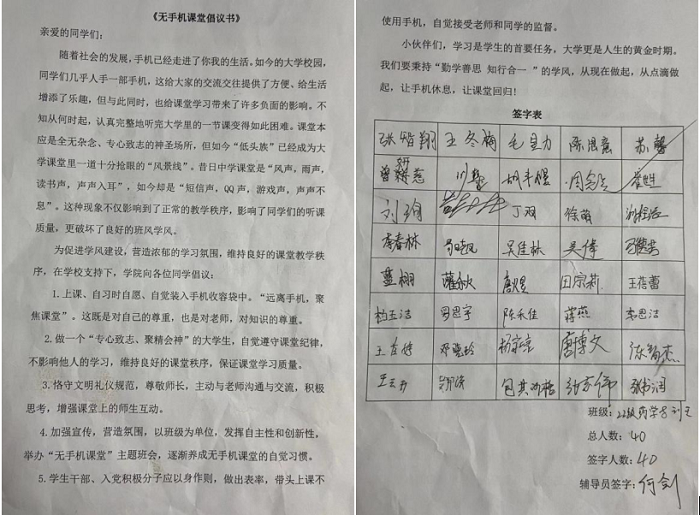 《无手机课堂倡议书》
亲爱的同学们：
随着社会的发展，手机已经走进了你我的生活。如今的大学校园，
同学们几乎人手一部手机，这给大家的交流交往提供了方便、给生活
增添了乐趣，但与此同时，也给课堂学习带来了许多负面的影响。不
知从何时起，认真完整地听完大学里的一节课变得如此困难。课堂本
应是全无杂念、专心致志的神圣场所，但如今“低头族”已经成为大
学课堂里一道十分抢眼的“风景线”。昔日中学课堂是“风声，雨声，
读书声，声声入耳”，如今却是“短信声，QQ声，游戏声，声声不
息”。这种现象不仅影响到了正常的教学秩序，影响了同学们的听课
质量，更破坏了良好的班风学风。
为促进学风建设，营造浓郁的学习氛围，维持良好的课堂教学秩
序，在学校支持下，学院向各位同学倡议：
1.上课、自习时自愿、自觉装入手机收容袋中。“远离手机，聚
焦课堂”。这既是对自己的尊重，也是对老师，对知识的尊重。
2.做一个“专心致志、聚精会神”的大学生，自觉遵守课堂纪律，
不影响他人的学习，维持良好的课堂秩序，保证课堂学习质量。
3.恪守文明礼仪规范，尊敬师长，主动与老师沟通与交流，积极
思考，增强课堂上的师生互动。
4.加强宣传，营造氛围，以班级为单位，发挥自主性和创新性，
举办“无手机课堂”主题班会，逐渐养成无手机课堂的自觉习惯。
5.学生干部、入党积极分子应以身作则，做出表率，带头上课不
使用手机，自觉接受老师和同学的监督。
小伙伴们，学习是学生的首要任务，大学更是人生的黄金时期。
我们要秉持“勤学善思 知行合一 ”的学风，从现在做起，从点滴做
起，让手机休息，让课堂回归！
签字表
张智翔 王冬梅 毛星力 陈思意 苏馨
丁羽 徐萌
李春林 吴佳林 吴倩
蓝栩 唐煜 田宗莉 王蓓蕾
陈禾佳 蒋燕 李思洁
唐博文 陈智杰
班级：22级药学
总人数：40
签字人数：40
辅导员签字：何剑